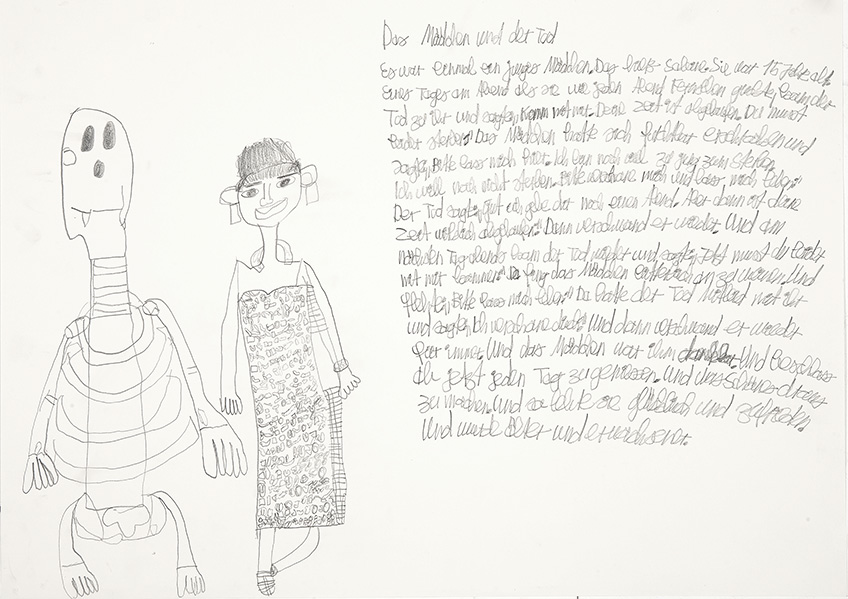 Das Mädchen und der Tod
Es war einmal ein junges Mädchen. Das hieß Sabine. Sie war 15 Jahre alt.
Eines Tages am Abend als sie wie jeden Abend Fernsehen guckte, kam der
Tod zu ihr und sagte: Komm mit mir. Deine Zeit ist abgelaufen. Du musst
leider sterben." Das Mädchen hatte sich furchtbar erschrocken und
sagte, Bitte lass mich hier. Ich bin noch viel zu jung zum sterben.
Ich will noch nicht sterben. Bitte verschone mich und lass mich leben."
Der Tod sagte, gut ich gebe dir noch einen Abend. Aber dann ist deine
Zeit wirklich abgelaufen." Dann verschwand er wieder. Und am
nächsten Tag abends kam der Tod wieder und sagte, Jetzt musst du leider
mit mir kommen." Da fing das Mädchen an zu weinen. Und
flehte, Bitte lass mich leben." Da hatte der Tod Mitleid mit ihr
und sagte, Ich verschone dich." Und dann verschwand er wieder
für immer. Und das Mädchen war ihm dankbar. Und beschloss
jetzt jeden Tag zu geniessen. Und was Schönes draus
zu machen. Und so lebte sie glücklich und zufrieden.
Und wurde älter und erwachsener.